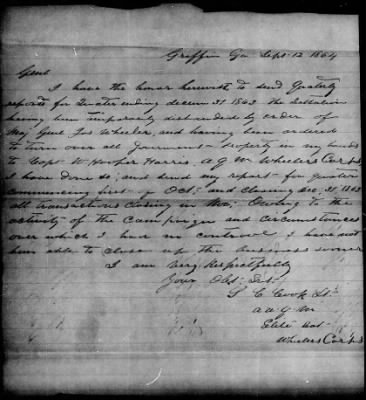 Griffin Ga Sept 12 1864
Genl
I have the honor herewith to send Quately
reports for Quater ending decem 31 1863 the Battalion
having been temporarily disbanded by order of
Maj Genl Jos Wheeler, and having been ordered
to turn over all Goverment property in my hands
to Capt W Hooper Harris, A Q M Wheelers Corps
I have done so; and send my report for quater
commencing first of Oct. and closing dec. 31 1863
all transactions closing in Nov. Owing to the
activity of the campaign and circumstances
over which I had no controul, I have not
been able to close up the business sooner
I am very Respectfully
Your Obt Svt
S C Cook Lt
A A Q M
Batt
Wheelers Corps